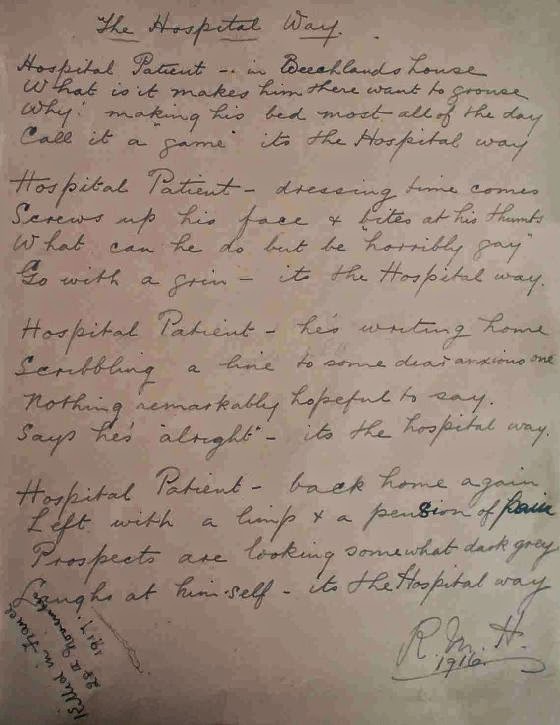 The Hospital Way.
Hospital Patient - in Beechlands house
What is it makes him there want to grouse
Why! making his bed most all of the day
Call it a "game" its the Hospital way
Hospital Patient - dressing time comes
Screws up his face & bites at his thumbs
What can he do but be "horribly gay"
Go with a grin - its the Hospital way.
Hospital Patient - he's writing home
Scribbling a line to some dear anxious one
Nothing remarkably hopeful to say.
Says he's "alright" - its the hospital way.
Hospital Patient - back home again
Left with a limp & a pension of pain
Prospects are looking somewhat dark grey
Laughs at him-self - its the Hospital way
R. M. H.
1916.
Killed in France
22nd November
1917.